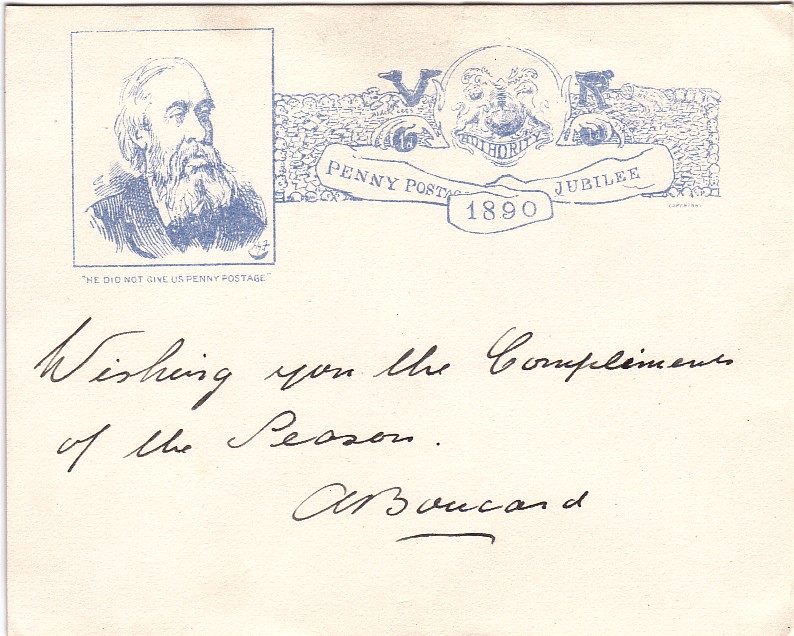 V R
AUTHORITY
PENNY POSTAGE JUBILEE
1890
"HE DID NOT GIVE US PENNY POSTAGE"
Wishing you the Compliments
of the Season.
A Boucard